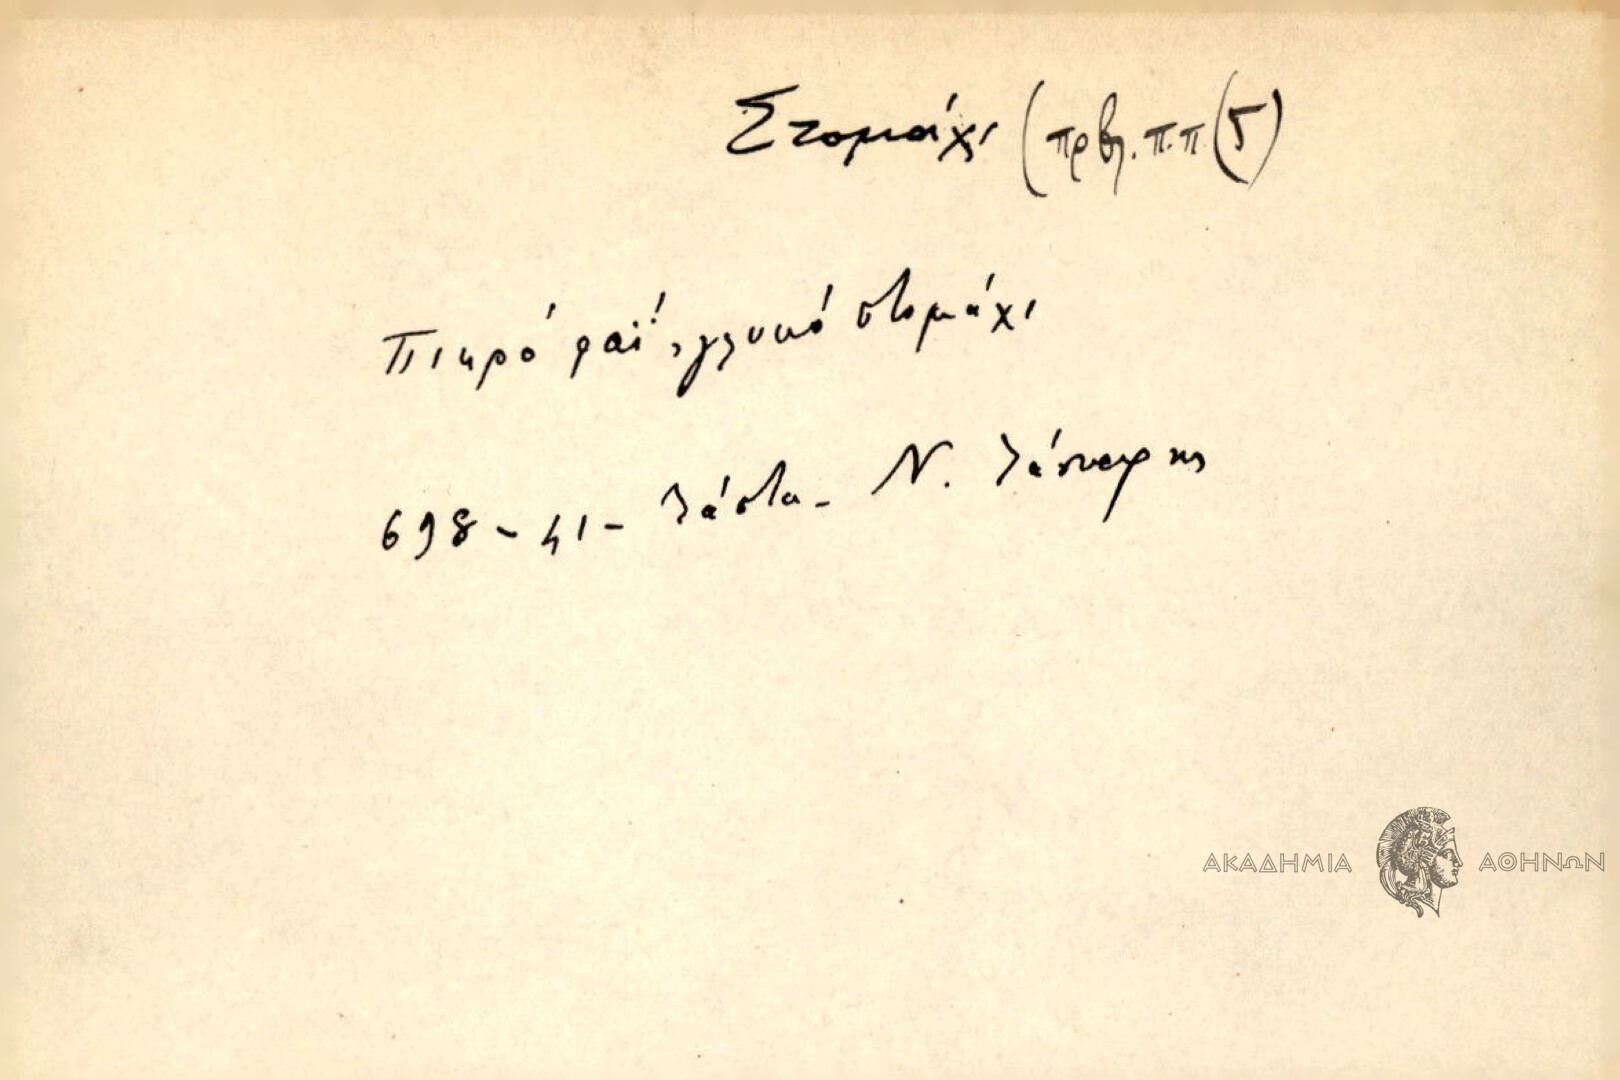 Στομάχι (πρβλ. π.π (5)
Πικρό φαΐ, γλυκό στομάχι
698 - 41 - Λάστα - Ν. Λάσκαρης
ΑΚΑΔΗΜΙΑ ΑΘΗΝΩΝ